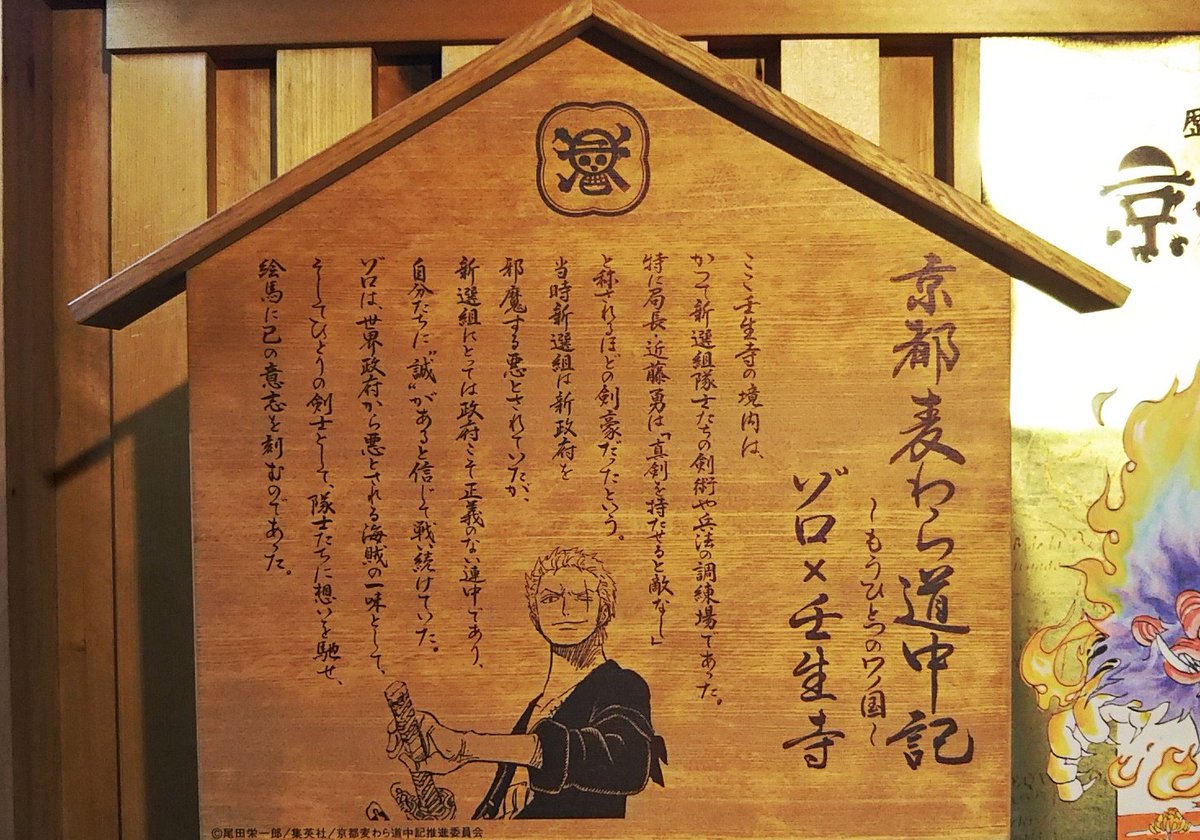 京都麦わら道中記
~もうひとつのワノ国~
ゾロ×壬生寺
ここ壬生寺の境内は、
かつて新選組隊士たちの剣術や兵法の調練場であった。
特に局長・近藤勇は「真剣を持たせると敵なし」
と称されるほどの剣豪だったという。
当時新選組は新政府を
邪魔する悪とされていたが、
新選組にとっては政府こそ正義のない連中であり、
自分たちに“誠”があると信じて戦い続けていた。
ゾロは、世界政府から悪とされる海賊の一味として、
そしてひとりの剣士として、隊士たちに想いを馳せ、
絵馬に己の意志を刻むのであった。
©尾田栄一郎/集英社/京都麦わら道中記推進委員会
歴
京